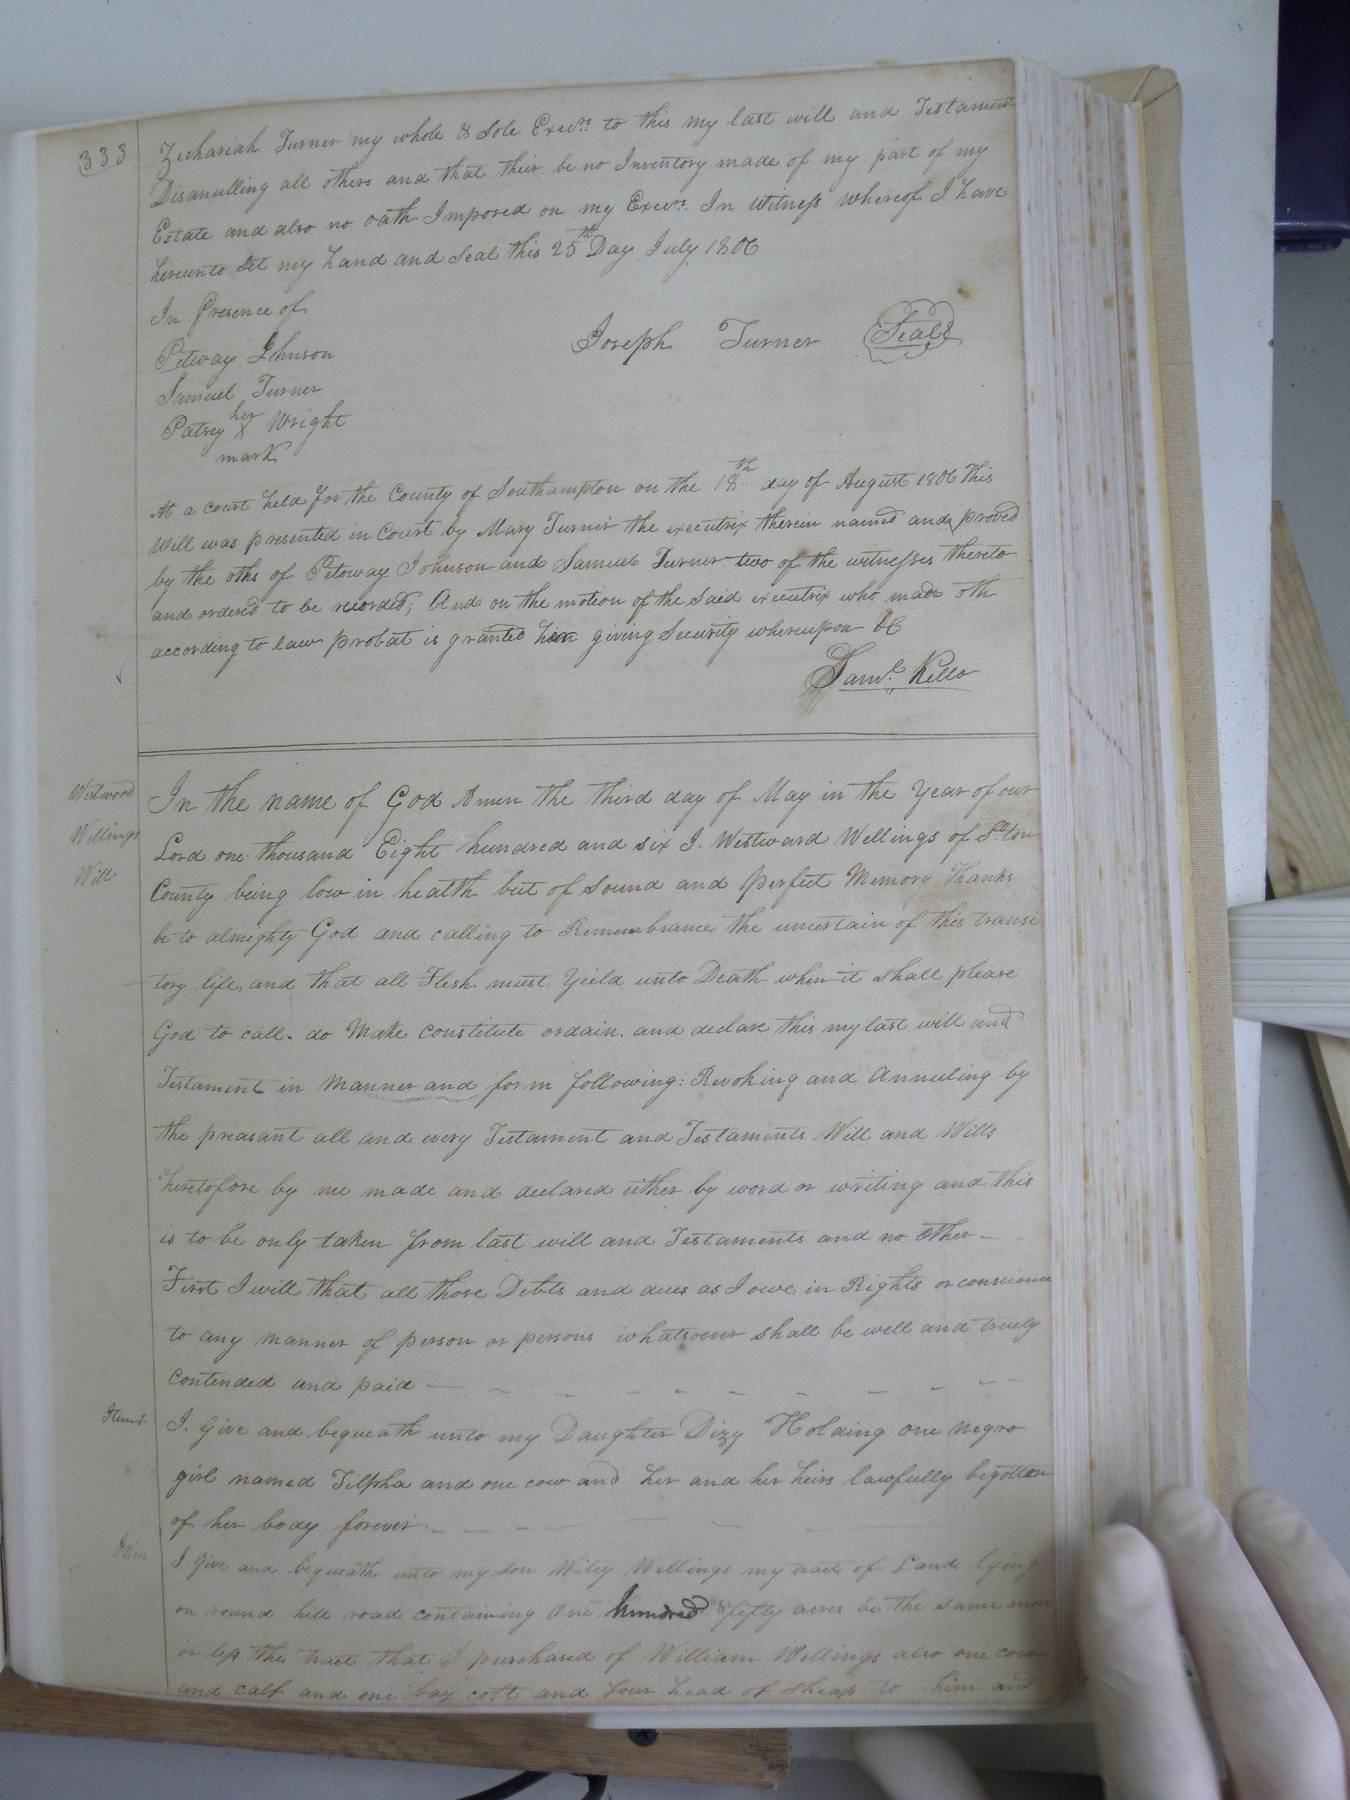 333
Zechariah Turner my whole & Sole Execrs. to this my last will and Testament
Disanulling all others and that their be no Inventory made of my part of my
Estate and also no oath Imposed on my Execrs. In Witness whereof I have
hereunto Set my hand and Seal this 25th Day July 1806
In Presence of
Joseph Turner Seal
Petway Johnson
Samuel Turner
Patsey her X Wright
mark
At a court held for the County of Southampton on the 18th day of August 1806 This
Will was presented in Court by Mary Turner the executrix therein named and proved
by the oths of Petoway Johnson and Samuel Turner two of the witnesses thereto
and ordered to be recorded; And on the motion of the said executrix who made oth
according to law probat is granted giving Security whereupon &C
Saml. Kello
Westwood
Wellings
Will
In the name of God Amen the third day of May in the Year of our
Lord one thousand Eight hundred and six I. Westward Wellings of S.ton
County being low in health but of Sound and perfect Memory Thanks
be to almighty God and calling to Remembrance the uncertain of this transi
tory life, and that all Flesh must Yeild unto Death when it shall please
God to call. do Make constitute ordain. and declare this my last will and
Testament in manner and form following: Revoking and Annuling by
the preasant all and every Testament and Testaments Will and Wills
heretofore by me made and declared either by word or writing and this
is to be only taken from last will and Testaments and no Other
First I will that all those Debts and dues as I owe in Rights or conscience
to any manner of person or persons whatsoever shall be well and truely
Contended and paid
Item I. Give and bequeath unto my Daughter Dizy Holding one negro
girl named Tilpha and one cow and her and her heirs lawfully begotten
of her body forever
Item I Give and bequeath unto my son Wiley Wellings my tract of Land lying
on round hill road containing One hundred & fifty acres be the same more
or less the tract that I purchased of William Wellings also one cow
and calf and one bay colt and four head of sheap to him and